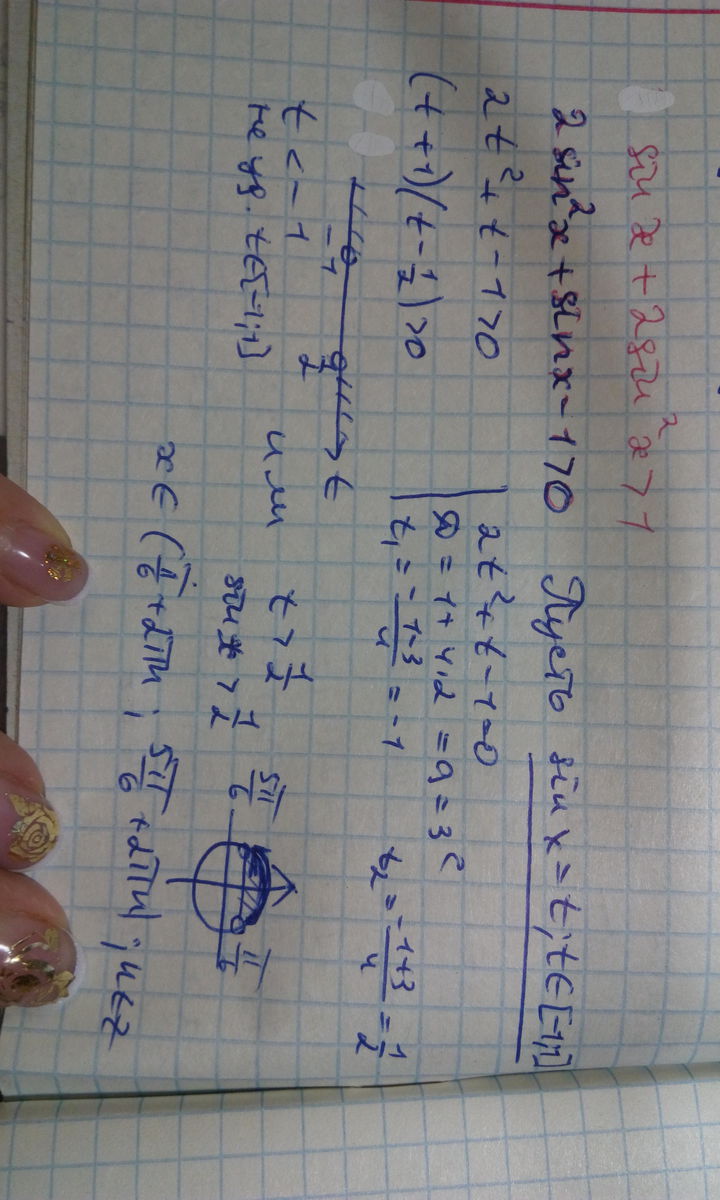 sin x + 2sin² x > 1
2 sin² x + sin x - 1 > 0 Пусть sin x = t; t ∈ [-1;1]
2t² + t - 1 > 0
(t + 1)(t - 1/2) > 0
2t² + t - 1 = 0
D = 1 + 4·2 = 9 = 3²
t₁ = (-1-3)/4 = -1 t₂ = (-1+3)/4 = 1/2
-1 1/2 t
t < -1 или t > 1/2
не уд. t ∈ [-1;1] sin x > 1/2
5π/6 π/6
x ∈ (π/6 + 2πn; 5π/6 + 2πn); n ∈ z